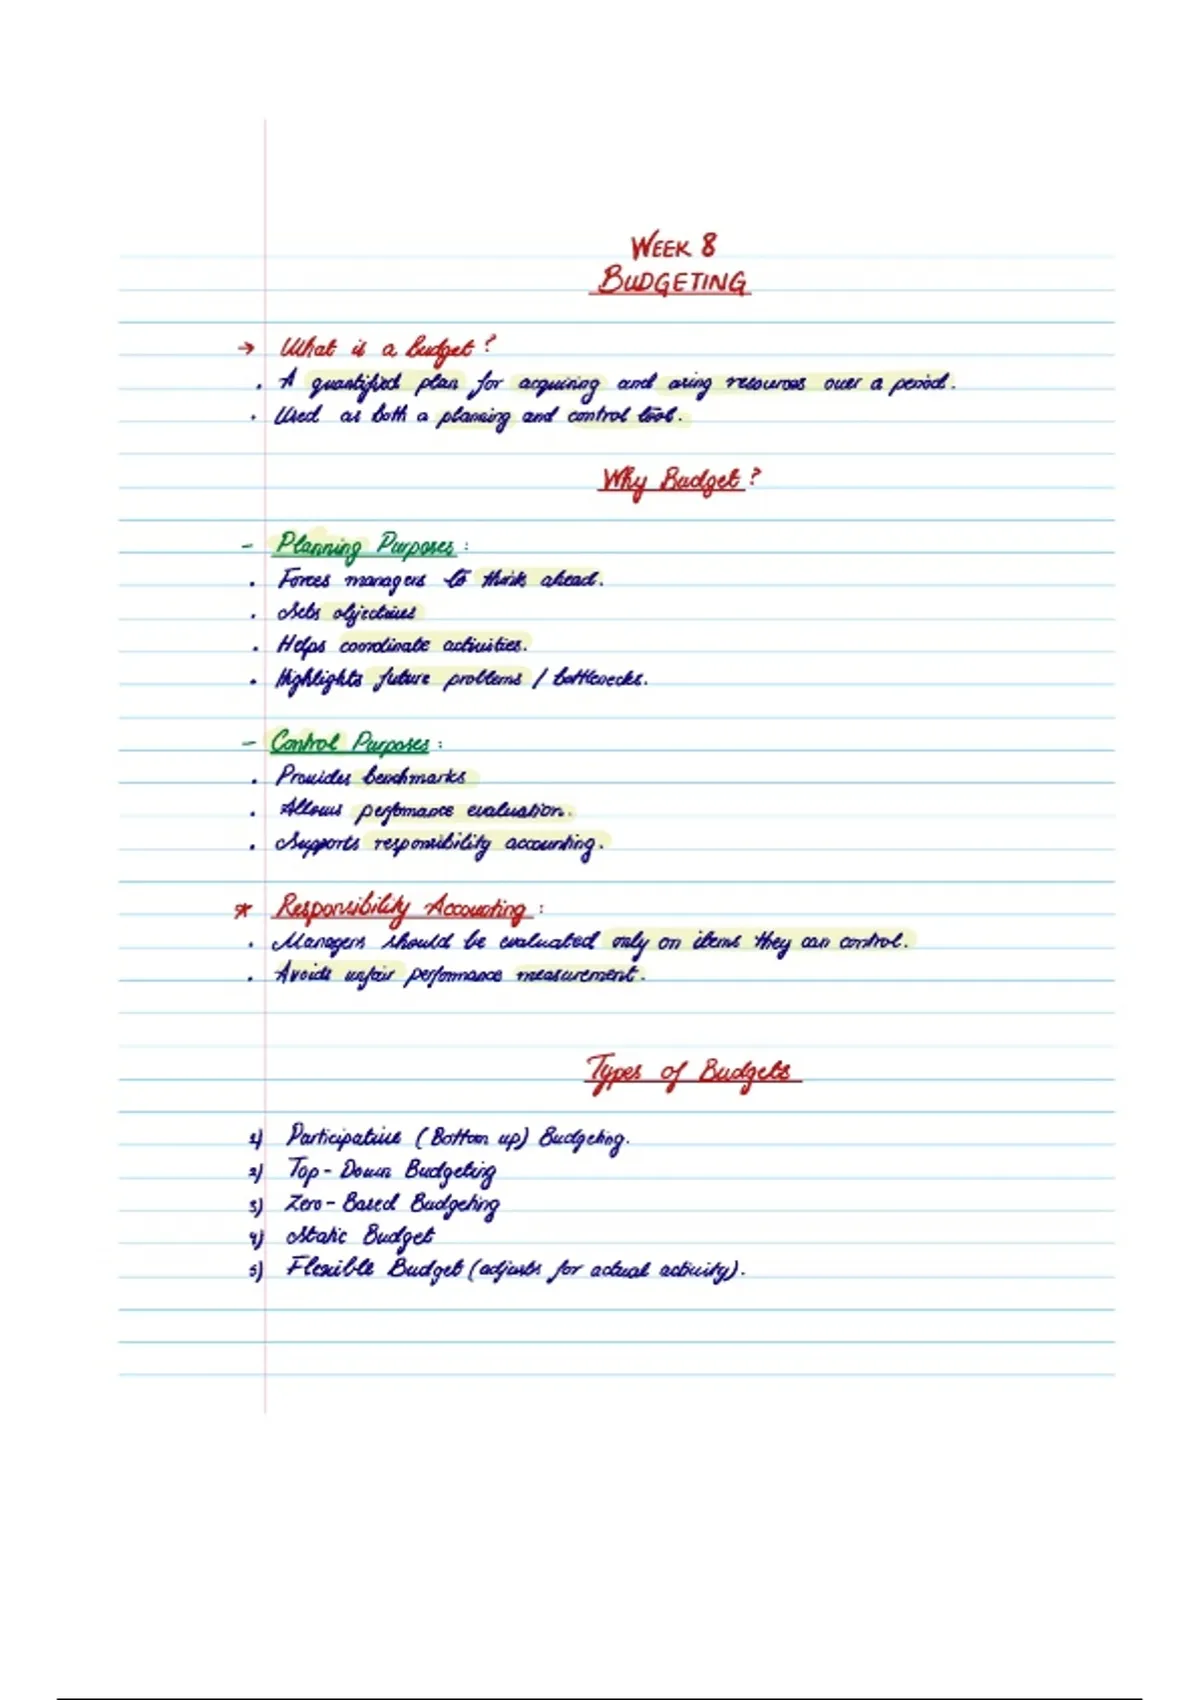 WEEK 8
BUDGETING
→ What is a budget?
. A quantified plan for acquiring and using resources over a period.
. Used as both a planning and control tool.
Why Budget?
- Planning Purposes:
. Forces managers to think ahead.
. Sets objectives
. Helps coordinate activities.
. Highlights future problems / bottlenecks.
- Control Purposes:
. Provides benchmarks
. Allows perfomance evaluation.
. Supports responsibility accounting.
* Responsibility Accounting:
. Managers should be evaluated only on items they can control.
. Avoids unfair performance measurement.
Types of Budgets
1) Participative (Bottom up) Budgeting.
2) Top-Down Budgeting
3) Zero-Based Budgeting
4) Static Budget
5) Flexible Budget (adjusts for actual activity).